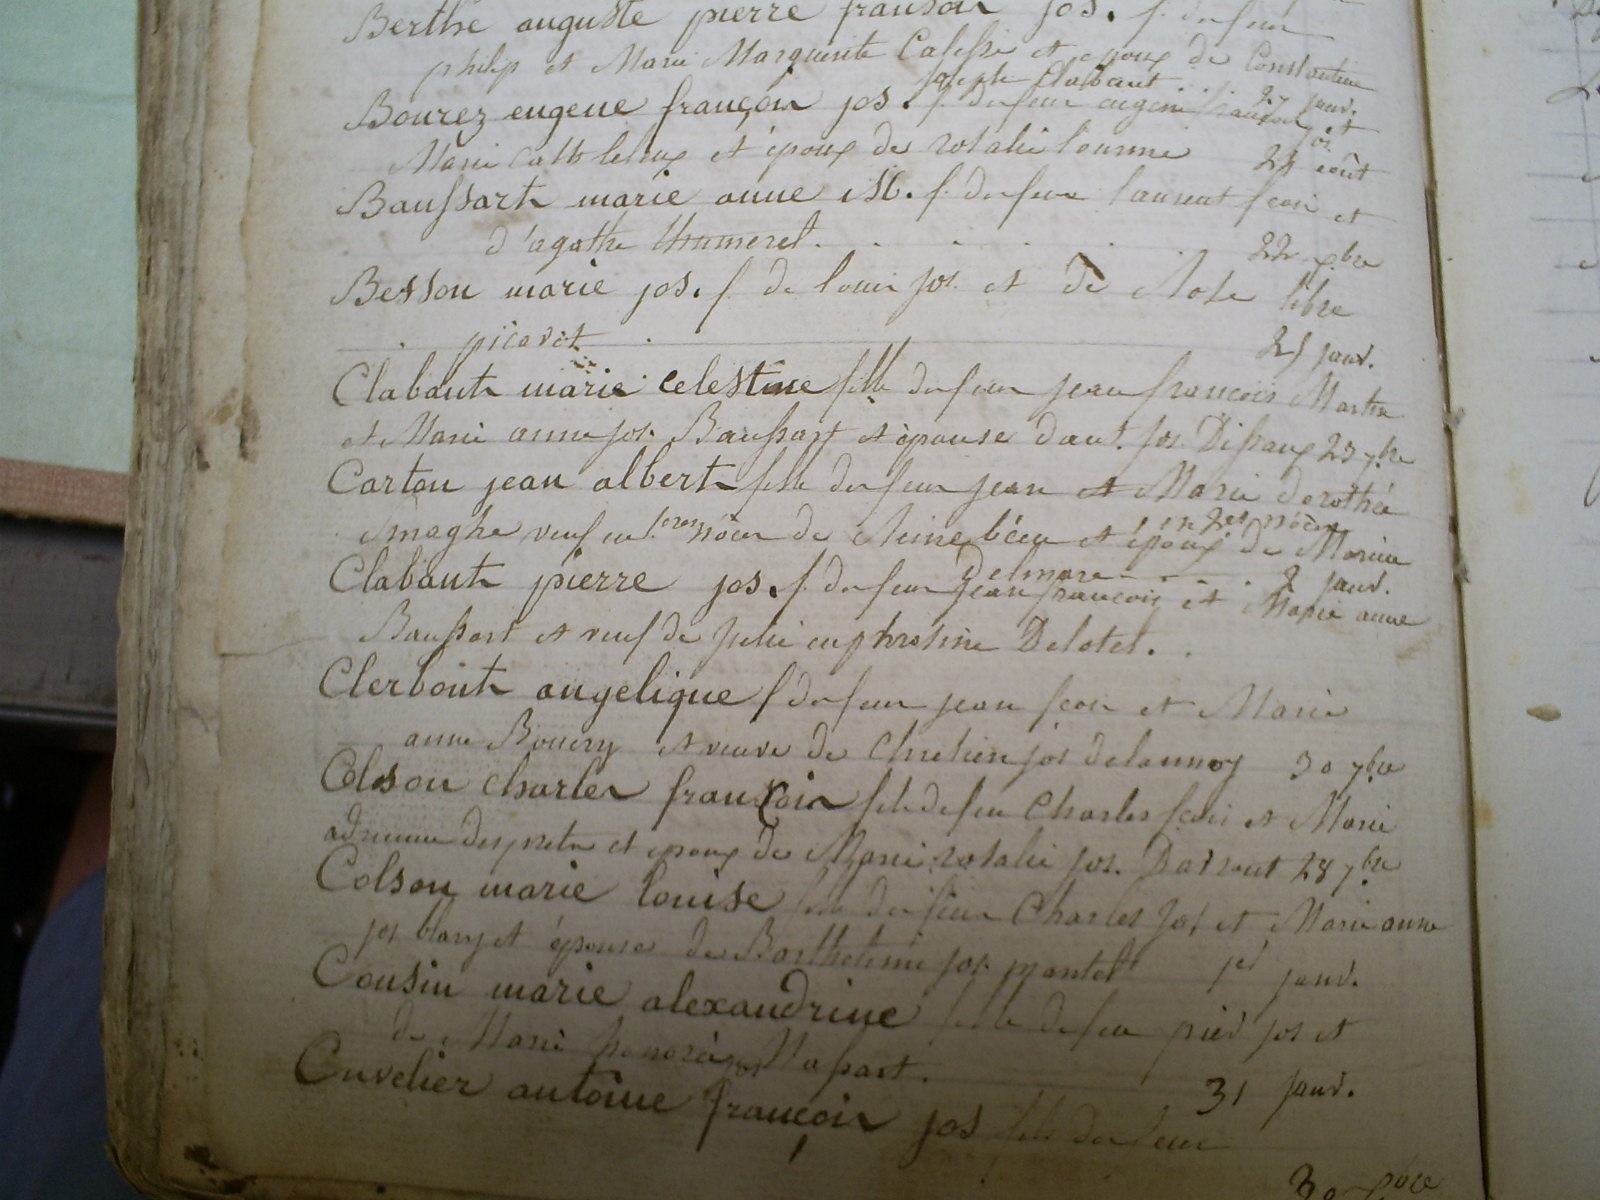 Berthe auguste pierre françois jos. f. du feu
philip et Marie Marguerite Calessi et epoux de Constantine
joseph Clabaut 27 janv.
Bourez eugene françois jos. f. du feu eugene françois jos. et
Marie cath leleux et époux de rosalie 29 août
Baussart marie anne M. f. du feu laurent fcois et
d'agathe thumerel. 22 xbre
Besson marie jos. f. de louis jos. et de Rose libre
picavet 25 janv.
Clabaut marie celestine fille du feu jean françois Martin
et Marie anne jos. Baussart et épouse d'aut. jos. Dissaux 23 7bre
Carton jean albert fils du feu jean et Marie dorothée
Smaghe veuf en 1eres nôces de Reine bécu et époux en 2es nôces de Marie
Delmare 2 janv.
Clabaut pierre jos. f. du feu jean françois et Marie anne
Baussart et veuf de julie euphrosine Delotel.
Clerbout angelique f du feu jean fcois et Marie
anne Bouery et veuve de chretien jos delannoy 30 7bre
Colson charles françois fils de feu Charles fcois et Marie
adrienne despretz et epoux de Marie rosalie jos. Darrout 28 7bre
Colson marie louise fille du feu Charles jos et Marie anne
jos blary et épouse de Barthelemie jos. plantel 1er janv.
Cousin marie alexandrine fille de feu pier jos et
de Marie honorée jos Massart. 31 janv.
Cuvelier antoine françois jos fils du feu
30 xbre